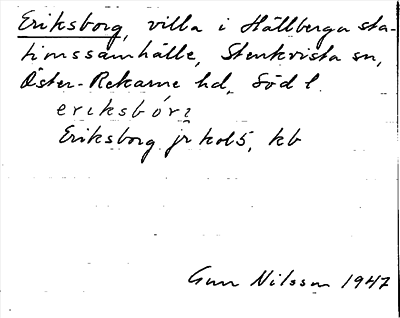 Eriksborg, villa i Hällberga sta-
tionssamhälle, Stenkvista sn,
Öster-Rekarne hd, Söd l.
eriksbórj
Eriksborg jr kol 5, kb
Gun Nilsson 1947